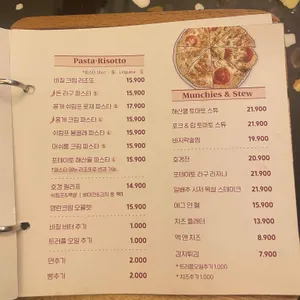 Pasta·Risotto
바질 크림 리조또 15.900
돈 라구 파스타 15.900
홍게 쉬림프 로제 파스타 17.900
홍게 크림 파스타 15.900
쉬림프 봉골레 파스타 15.900
머쉬룸 크림 파스타 15.900
포테이토 해산물 파스타 15.900
호경 필라프 14.900
명란크림 오믈렛 15.900
바질 버터 추가 1.000
트러플 오일 추가 1.000
면추가 2.000
빵추가 2.000
Munchies & Stew
해산물 토마토 스튜 21.900
포크 & 립 토마토 스튜 21.900
바지락술찜 19.900
호경전 20.900
포테이토 라구 라자냐 21.900
알배추 시저 목살 스테이크 21.900
에그 인 헬 15.900
치즈 플래터 13.900
맥 앤 치즈 8.900
감자튀김 7.900
*트러플오일추가 1.000
*치즈추가 1.000